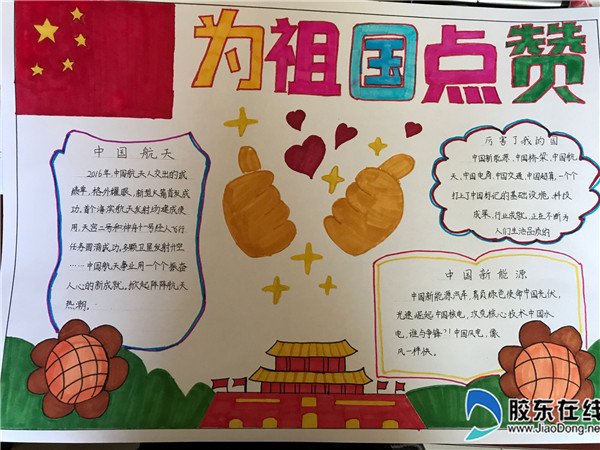 为祖国点赞
中国航天
2016年,中国航天人交出的成
绩单,格外耀眼,新型火箭首发成
功,首个海滨航天发射场建成使
用,天宫二号和神舟十一号载人飞行
任务圆满成功,多颗卫星发射升空
……中国航天事业用一个个振奋
人心的新成就,掀起阵阵航天
热潮.
厉害了我的国
中国新能源、中国桥梁、中国航
天、中国电商、中国交通、中国超算,一个个
打上了中国标记的基础设施、科技
成果、行业成就,正在不断为
人们生活品质的
中国新能源
中国新能源汽车,肩负绿色使命中国光伏,
光速崛起中国核电,攻克核心技术中国水
电,谁与争锋?!中国风电,像
风一样快.
胶东在线
www.JiaoDong.net